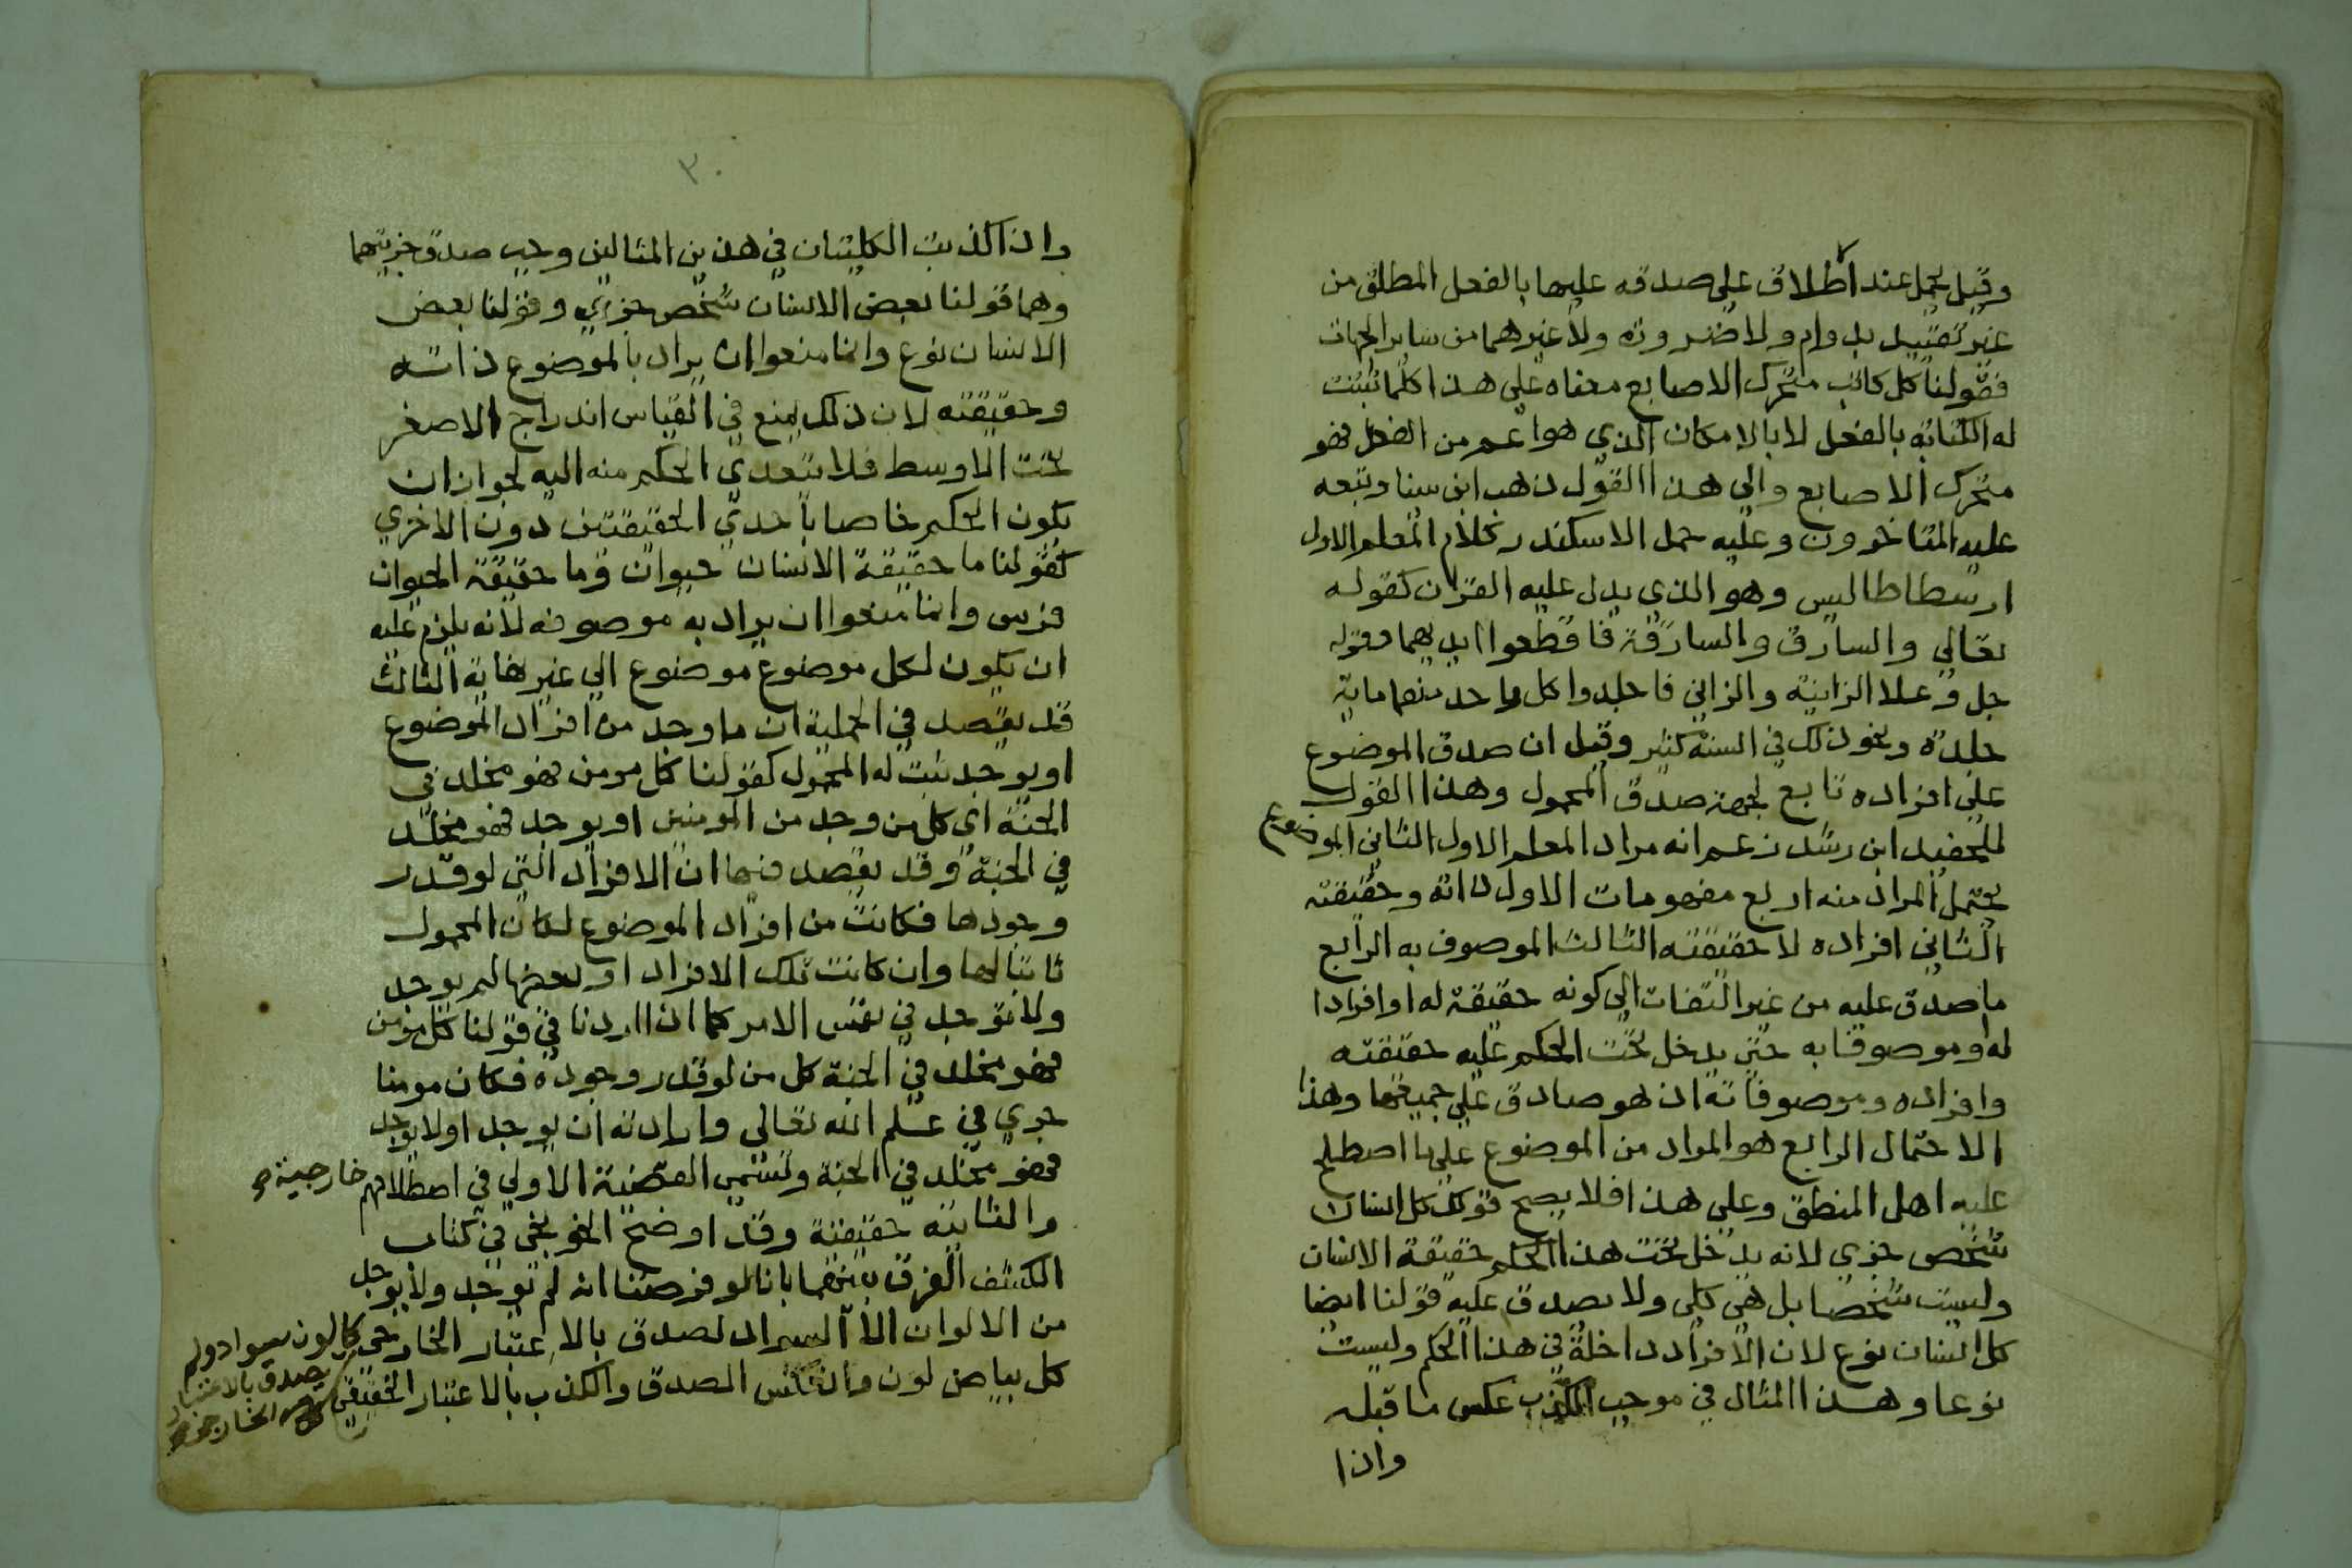 وقيل يحمل عند الاطلاق على صدقه عليها بالفعل المطلق من
غير تقييد بدوام ولا ضرورة ولا غيرهما من ساير الجهات
فقولنا كل كاتب متحرك الاصابع معناه على هذا كلما ثبتت
له الكتابة بالفعل لا بالامكان الذي هو اعم من الفعل فهو
متحرك الاصابع والي هذا القول ذهب ابن سينا وتبعه
عليه المتاخرون وعليه حمل الاسكندر كلام المعلم الاول
ارسطاطاليس وهو الذي يدل عليه القران كقوله
تعالي والسارق والسارقة فاقطعوا ايديهما وقوله
جل وعلا الزانية والزاني فاجلدوا كل واحد منهما ماية
جلدة ونحو ذلك في السنة كثير وقيل ان صدق الموضوع
علي افراده تابع لجهة صدق المحمول وهذا القول
للحفيد ابن رشد زعم انه مراد المعلم الاول الثاني الموضوع
يحتمل المراد منه اربع مفهومات الاول ذاته وحقيقته
الثاني افراده لا حقيقته الثالث الموصوف به الرابع
ما صدق عليه من غير التفات الي كونه حقيقة له او افرادا
له او موصوفا به حتى يدخل تحت الحكم عليه حقيقته
وافراده وموصوفاته اذ هو صادق علي جميعها وهذا
الاحتمال الرابع هو المراد من الموضوع علي ما اصطلح
عليه اهل المنطق وعلي هذا فلا يصح قولك كل انسان
شخص جزي لانه يدخل تحت هذا الحكم حقيقة الانسان
وليست شخصا بل هي كلي ولا يصدق عليه قولنا ايضا
كل انسان نوع لان الافراد داخلة في هذا الحكم وليست
نوعا وهذا المثال في موجب الكذب عكس ما قبله
واذا
٣٠
واذا كذبت الكليتان في هذين المثالين وجب صدق جزيتهما
وهما قولنا بعض الانسان شخص جزي وقولنا بعض
الانسان نوع وانما منعوا ان يراد بالموضوع ذاته
وحقيقته لان ذلك يمنع في القياس اندراج الاصغر
تحت الاوسط فلا يتعدي الحكم منه اليه لجواز ان
يكون الحكم خاصا باحدي الحقيقتين دون الاخري
كقولنا ما حقيقة الانسان حيوان وما حقيقة الحيوان
فرس وانما منعوا ان يراد به موصوفه لانه يلزم عليه
ان يكون لكل موضوع موضوع الي غير غاية الثالث
قد يقصد في الحملية ان ما وجد من افراد الموضوع
او يوجد ثبت له المحمول كقولنا كل مومن فهو مخلد في
الجنة اي كل من وجد من المومنين او يوجد فهو مخلد
في الجنة وقد يقصد فيها ان الافراد التي لو قدر
وجودها فكانت من افراد الموضوع لكان المحمول
ثابتا لها وان كانت تلك الافراد او بعضها لم يوجد
ولا توجد في نفس الامر كما اذا اردنا في قولنا كل مومن
فهو مخلد في الجنة كل من لو قدر وجوده فكان مومنا
جري في علم الله تعالي وارادته ان يوجد او لا يوجد
فهو مخلد في الجنة وتسمي القضية الاولي في اصطلاحهم خارجية
والثانية حقيقية وقد اوضح الخونجي في كتاب
الكشف الفرق بينهما بانا لو فرضنا انه لم توجد ولا يوجد
من الالوان الا السواد لصدق بالاعتبار الخارجي كل لون سواد ولم
يصدق بالاعتبار
كل بياض لون وانعكس الصدق والكذب بالاعتبار الحقيقي
الخارجي